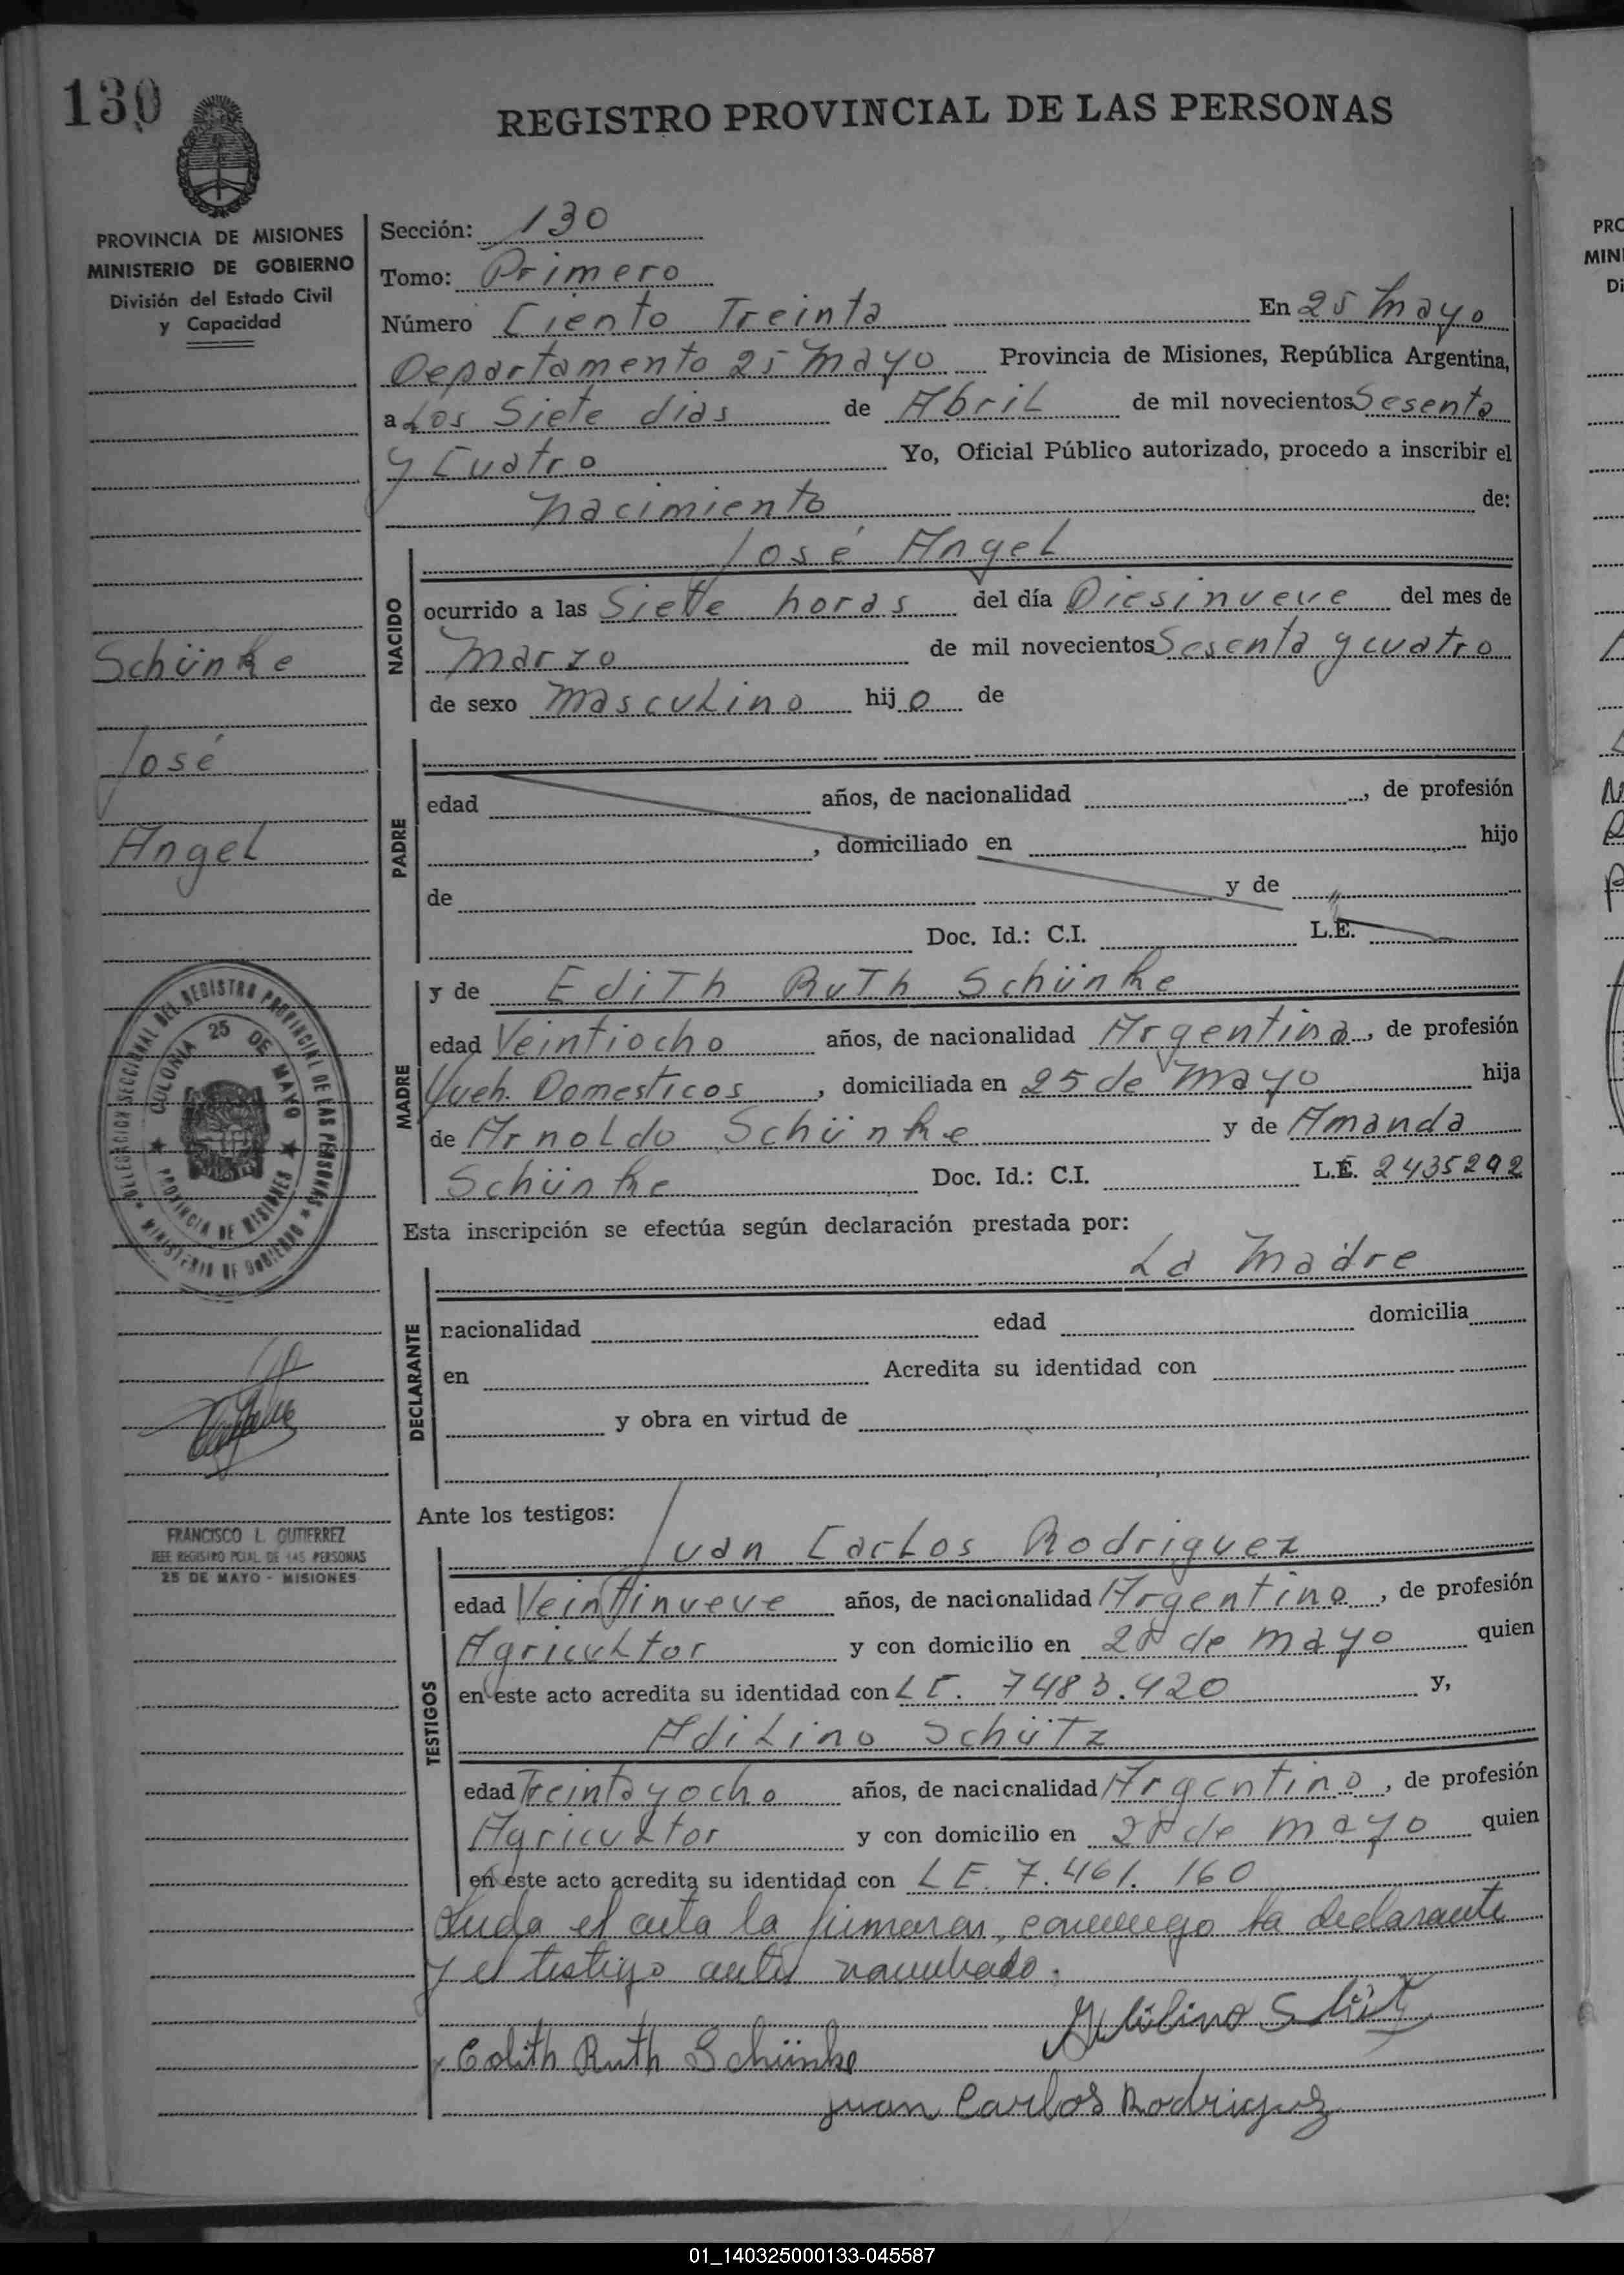 130
REGISTRO PROVINCIAL DE LAS PERSONAS
PROVINCIA DE MISIONES
MINISTERIO DE GOBIERNO
División del Estado Civil
y Capacidad
Schünke
José
Angel
DELEGACION SECCIONAL DEL REGISTRO PROVINCIAL DE LAS PERSONAS
MINISTERIO DE GOBIERNO
COLONIA 25 DE MAYO
PROVINCIA DE MISIONES
FRANCISCO L. GUTIERREZ
JEFE REGISTRO PCIAL. DE LAS PERSONAS
25 DE MAYO - MISIONES
Sección: 130
Tomo: Primero
Número Ciento Treinta En 25 Mayo
Departamento 25 Mayo Provincia de Misiones, República Argentina,
a Los Siete dias de Abril de mil novecientos Sesenta
y Cuatro Yo, Oficial Público autorizado, procedo a inscribir el
nacimiento de:
NACIDO
José Angel
ocurrido a las Siete horas del día Diesinueve del mes de
Marzo de mil novecientos Sesenta y cuatro
de sexo Masculino hijo de
PADRE
edad años, de nacionalidad , de profesión
, domiciliado en hijo
de y de
Doc. Id.: C.I. L.E.
MADRE
y de Edith Ruth Schünke
edad Veintiocho años, de nacionalidad Argentina, de profesión
Queh. Domesticos, domiciliada en 25 de Mayo hija
de Arnoldo Schünke y de Amanda
Schünke Doc. Id.: C.I. L.E. 2435292
Esta inscripción se efectúa según declaración prestada por:
La Madre
DECLARANTE
nacionalidad edad domicilia
en Acredita su identidad con
y obra en virtud de
Ante los testigos:
TESTIGOS
Juan Carlos Rodriguez
edad Veintinueve años, de nacionalidad Argentino, de profesión
Agricultor y con domicilio en 25 de Mayo quien
en este acto acredita su identidad con LE. 7483.420 y,
Adilino Schütz
edad Treinta y ocho años, de nacionalidad Argentino, de profesión
Agricultor y con domicilio en 25 de Mayo quien
en este acto acredita su identidad con LE. 7.461.160
el acta la conmigo la declarante
y el testigo
Adilino
Edith Ruth Schünke
Juan Carlos Rodriguez
01_140325000133-045587